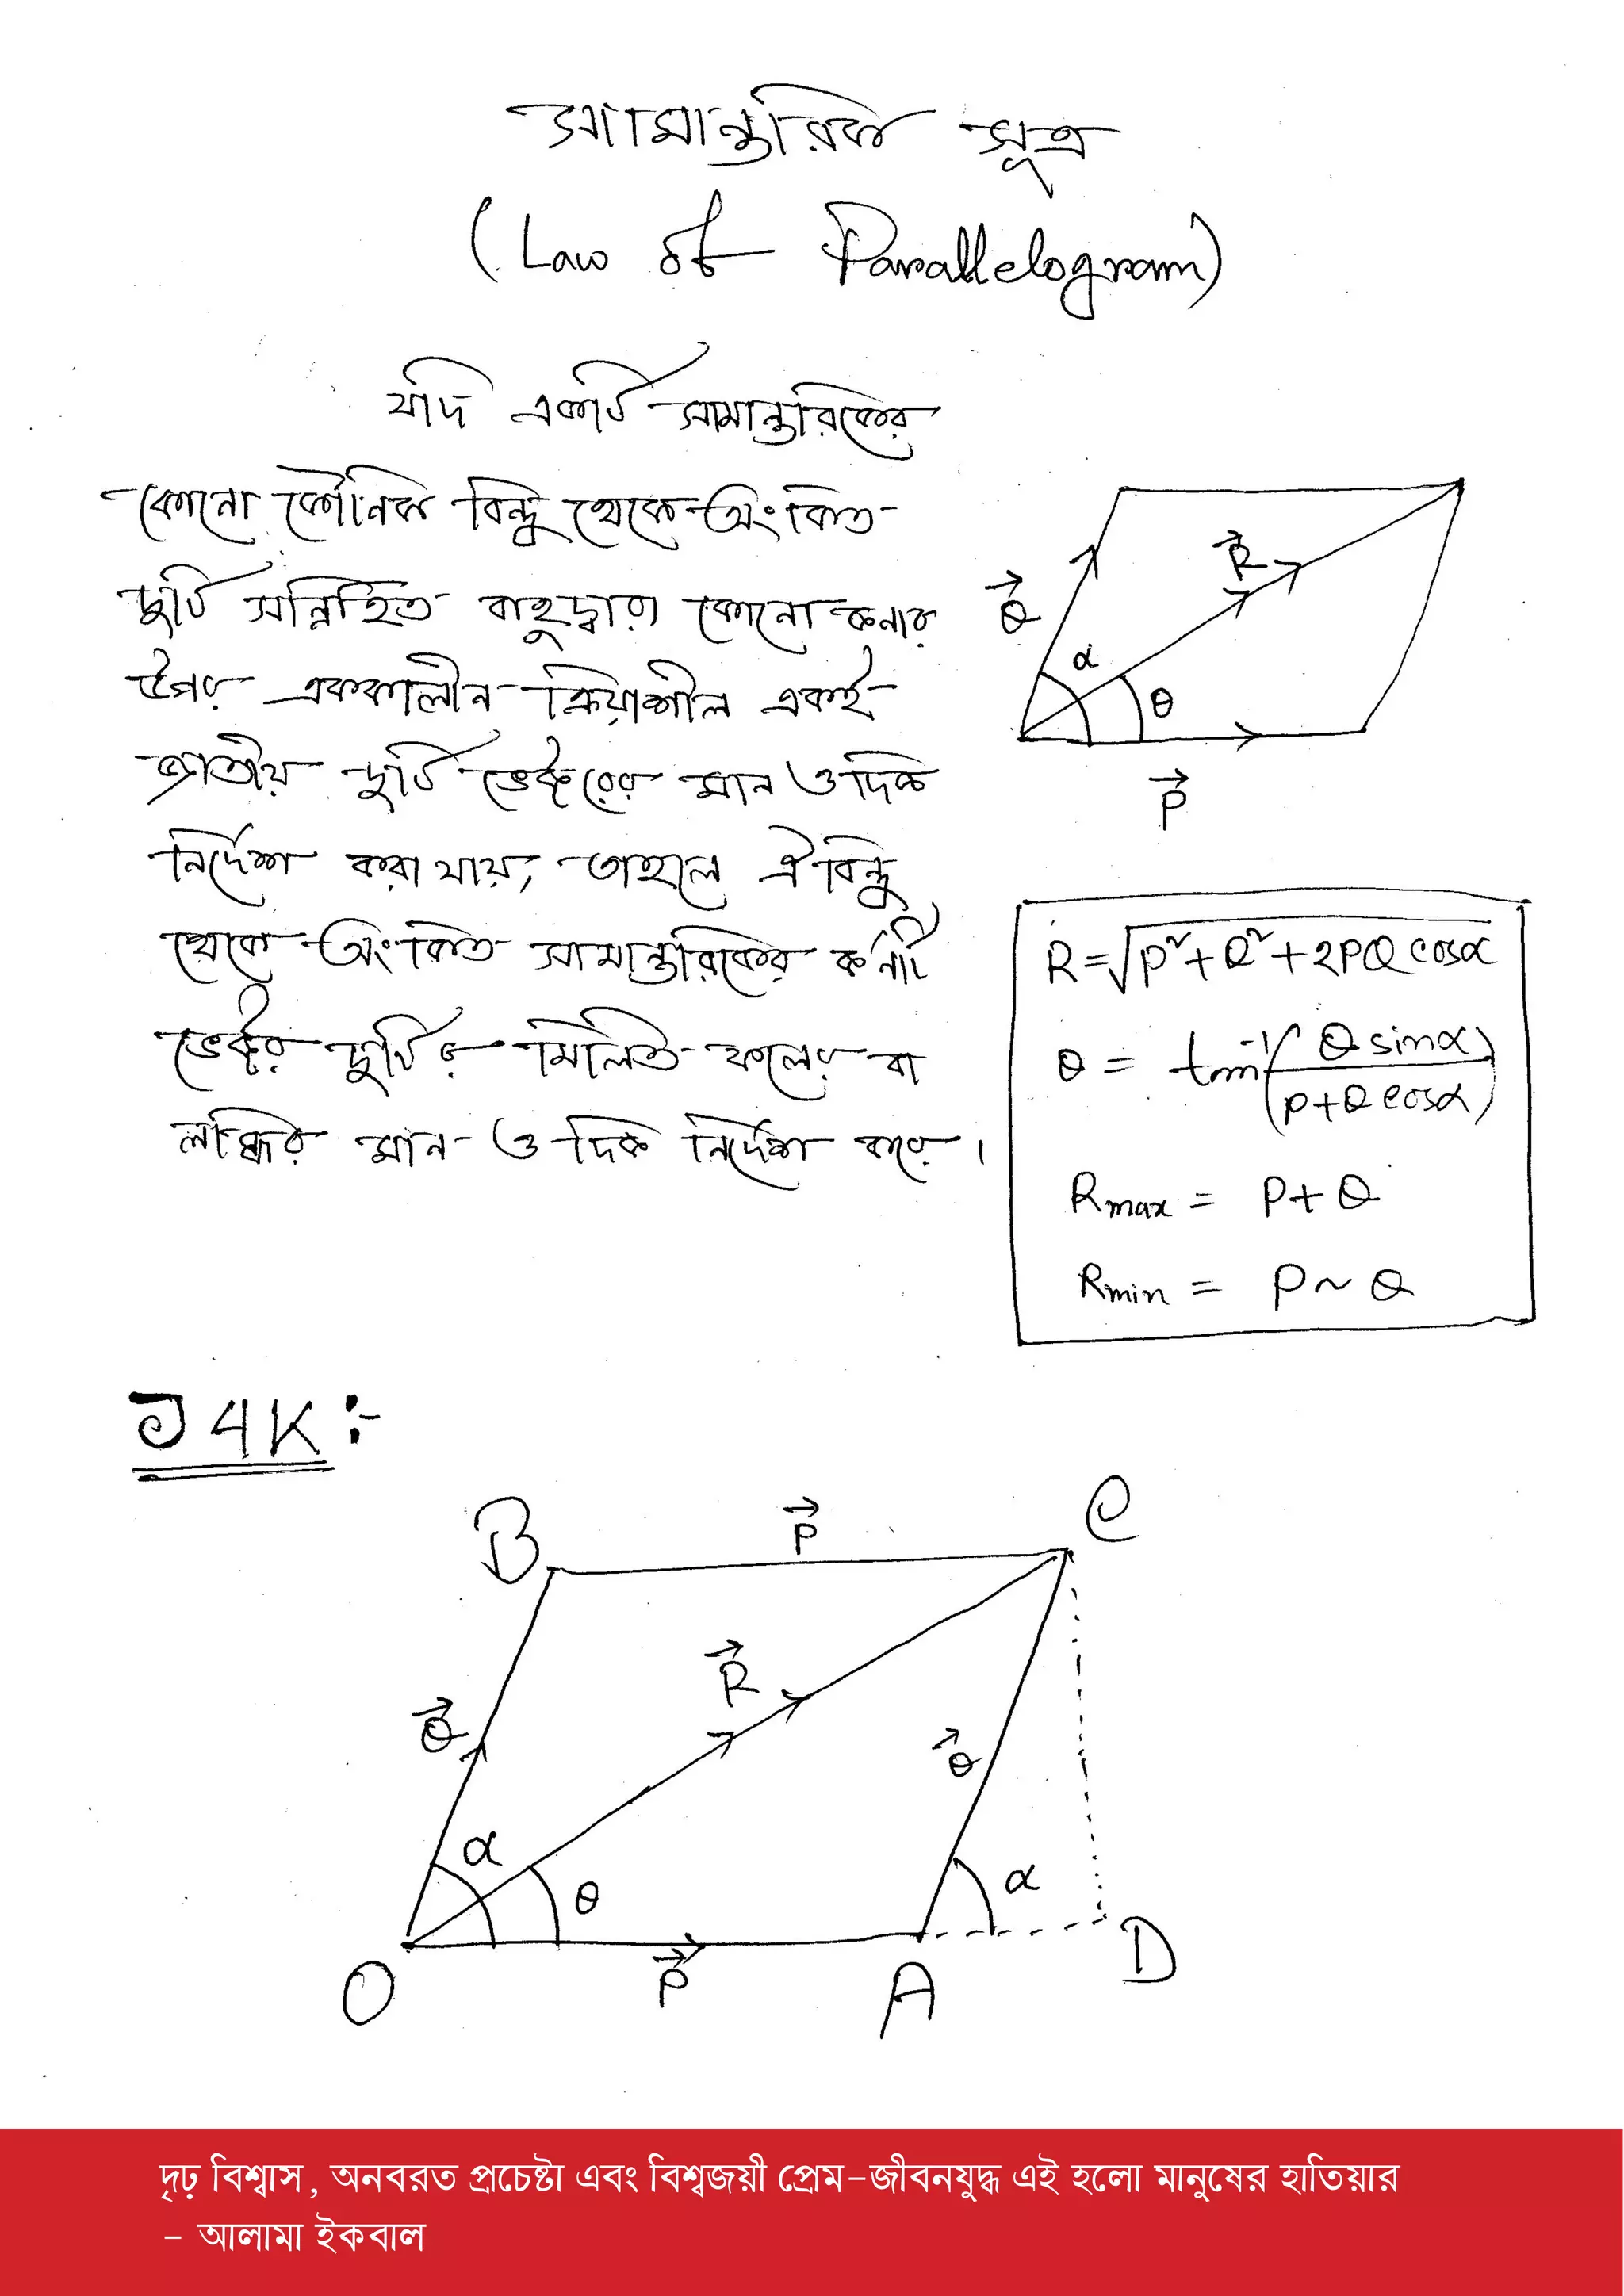 সামান্তরিক সূত্র
(Law of Parallelogram)
যদি একটি সামান্তরিকের
কোনো কৌনিক বিন্দু থেকে অংকিত
দুটি সন্নিহিত বাহুদ্বারা কোনো কনার
উপর এককালীন ক্রিয়াশীল একই
জাতীয় দুটি ভেক্টরের মান ও দিক
নির্দেশ করা যায়, তাহলে ঐ বিন্দু
থেকে অংকিত সামান্তরিকের কর্ণটি
ভেক্টর দুটির মিলিত ফলের বা
লব্ধির মান ও দিক নির্দেশ করে।
Q⃗
R⃗
α
θ
P⃗
R = √P²+Q²+2PQ cosα
θ = tan⁻¹(Q sinα / P+Q cosα)
Rmax = P+Q
Rmin = P~Q
J4K :-
B
P⃗
C
R⃗
Q⃗
Q⃗
α
θ
α
O
P⃗
A
D
দৃঢ় বিশ্বাস, অনবরত প্রচেষ্টা এবং বিশ্বজয়ী প্রেম-জীবনযুদ্ধ এই হলো মানুষের হাতিয়ার
- আলামা ইকবাল